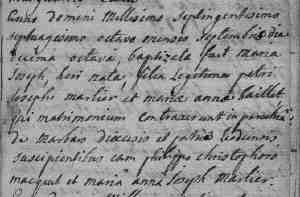 domini millesimo septingentesimo
septuagesimo octavo mensis septembris die
decima octava, baptizata fuit maria
Joseph, heri nata, filia legitima petri
Josephi martier et maria anna Taillet
qui matrimonium contraxerunt in parochia
de marbais diocesis et patriæ
suscipientibus eam philippo christophoro
macquet et maria anna Joseph martier.